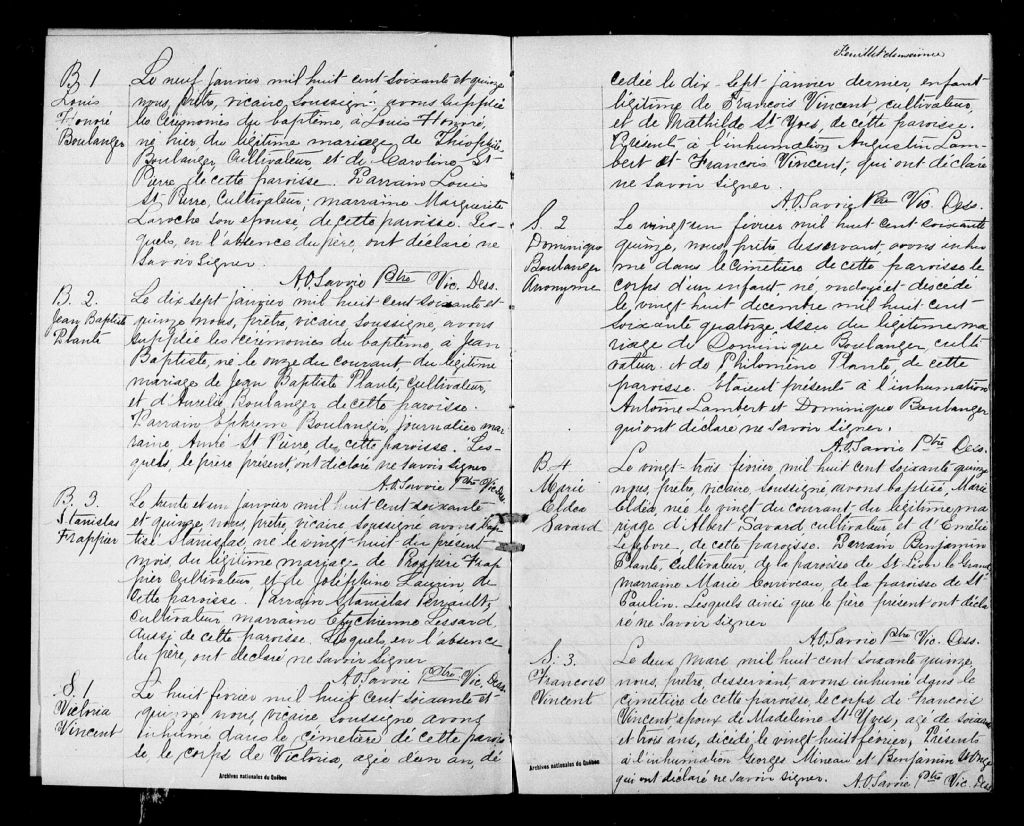 B. 1
Louis
Honoré
Boulanger
Le neuf janvier mil huit cent soixante et quinze
nous, prêtre, vicaire, soussigné, avons suppléé
les cérémonies du baptême, à Louis Honoré,
né hier du légitime mariage de Théophile
Boulanger, Cultivateur et de Caroline St
Pierre de cette paroisse. Parrain Louis
St Pierre, Cultivateur; marraine Marguerite
Laroche son epouse, de cette paroisse. Les-
quels, en l'absence du père, ont déclaré ne
savoir signer.
A.O. Savoie Ptre Vic. Dess.
B. 2.
Jean Baptiste
Plante
Le dix sept janvier mil huit cent soixante et
quinze nous, prêtre, vicaire, soussigné, avons
suppléé les cérémonies du baptême, à Jean
Baptiste, né le onze du courant du légitime
mariage de Jean Baptiste Plante, cultivateur,
et d'Aurélie Boulanger de cette paroisse.
Parrain Ephrem Boulanger, journalier mar-
raine St Pierre, de cette paroisse. Les-
quels, le père présent, ont déclaré ne savoir signer
A.O. Savoie Ptre Vic Dess.
B. 3
Stanislas
Frappier
Le trente et un janvier mil huit cent soixante
et quinze, nous, prêtre, vicaire soussigné avons bap-
tisé Stanislas, né le vingt-huit du présent
mois du légitime mariage de Prospère Frap-
pier Cultivateur, et de Joséphine Laugin de
cette paroisse. Parrain Stanislas Perrault,
cultivateur, marraine Lessard,
aussi de cette paroisse. Lesquels en l'absence
du père, ont déclaré ne savoir signer
A.O. Savoie Ptre Vic. Dess.
S. 1
Victoria
Vincent
Le huit fevrier mil huit cent soixante et
quinze, nous, vicaire, soussigné avons
inhumé dans le cémetière de cette parois-
se, le corps de Victoria, agée d'un an, dé
Archives nationales du Québec
Feuillet deuxième
cedée le dix-sept janvier dernier, enfant
légitime de Francois Vincent, cultivateur,
et de Mathilde St Yves, de cette paroisse.
Présents à l'inhumation Augustin Lam-
bert et Francois Vincent, qui ont déclaré
ne savoir signer.
A.O. Savoie Ptre Vic. Dess.
S. 2
Dominique
Boulanger
Anonyme
Le vingt un fevrier mil huit cent soixante
quinze, nous, prêtre desservant avons inhu-
mé dans le cimetière de cette paroisse le
corps d'un enfant né, ondoyé et décédé
le vingt huit décembre mil huit cent
soixante quatorze, issu du légitime ma-
riage de Dominique Boulanger, culti-
vateur. et de Philomène Plante, de cette
paroisse. Etaient présents à l'inhumation
Antoine Lambert et Dominique Boulanger
qui ont déclaré ne savoir signer.
A.O. Savoie Ptre Dess.
B. 4
Marie
Eldea
Savard
Le vingt-trois fevrier, mil huit cent soixante quinze
nous, prêtre, vicaire, soussigné avons baptisé, Marie
Eldea, née le vingt du courant du légitime ma-
riage d'Albert Savard cultivateur et d'Emélie
Lefebvre, de cette paroisse. Parrain Benjamin
Plante, Cultivateur, de la paroisse de St Léon le Grand
marraine Marie Corriveau, de la paroisse de St
Paulin. Lesquels ainsi que le père present ont décla-
ré ne savoir signer
A.O. Savoie Ptre Vic. Dess.
S. 3.
Francois
Vincent
Le deux mars mil huit-cent soixante quinze,
nous, prêtre, desservant avons inhumé dans le
cimetière de cette paroisse, le corps de Francois
Vincent époux de Madeleine St Yves, agé de soixante
et trois ans, décédé le vingt huit fevrier, Présents
à l'inhumation Georges Mineau et Benjamin
qui ont déclaré ne savoir signer.
A.O. Savoie Ptre Vic. Dess
Archives nationales du Québec